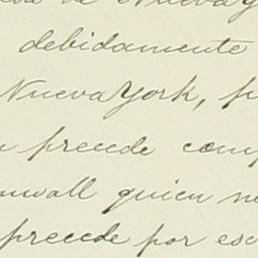 de Nueva Y
debidamente
Nueva York, p
preende com
nwall quien no
preede por esc